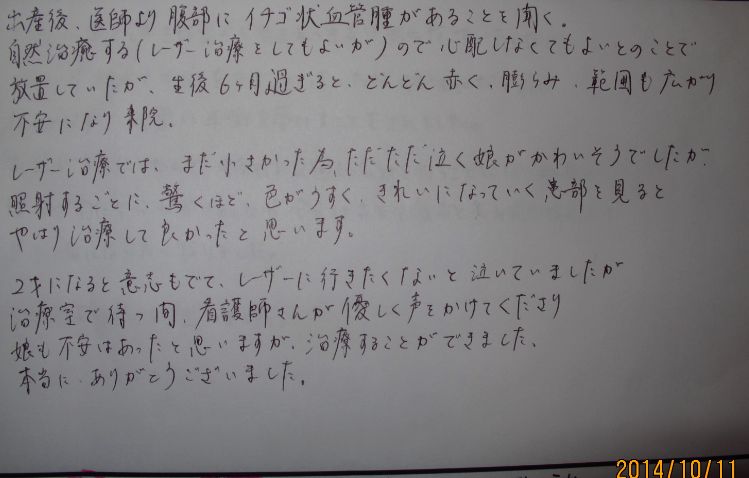 出産後、医師より腹部にイチゴ状血管腫があることを聞く。
自然治癒する(レーザー治療をしてもよいが)ので心配しなくてもよいとのことで
放置していたが、生後6ヶ月過ぎると、どんどん赤く、膨らみ、範囲も広がり
不安になり来院。
レーザー治療では、まだ小さかった為、ただただ泣く娘がかわいそうでしたが、
照射するごとに、驚くほど、色がうすく、きれいになっていく患部を見ると
やはり治療して良かったと思います。
2才になると意志もでて、レーザーに行きたくないと泣いていましたが
治療室で待つ間、看護師さんが優しく声をかけてくださり
娘も不安はあったと思いますが、治療することができました。
本当に、ありがとうございました。
2014/10/11